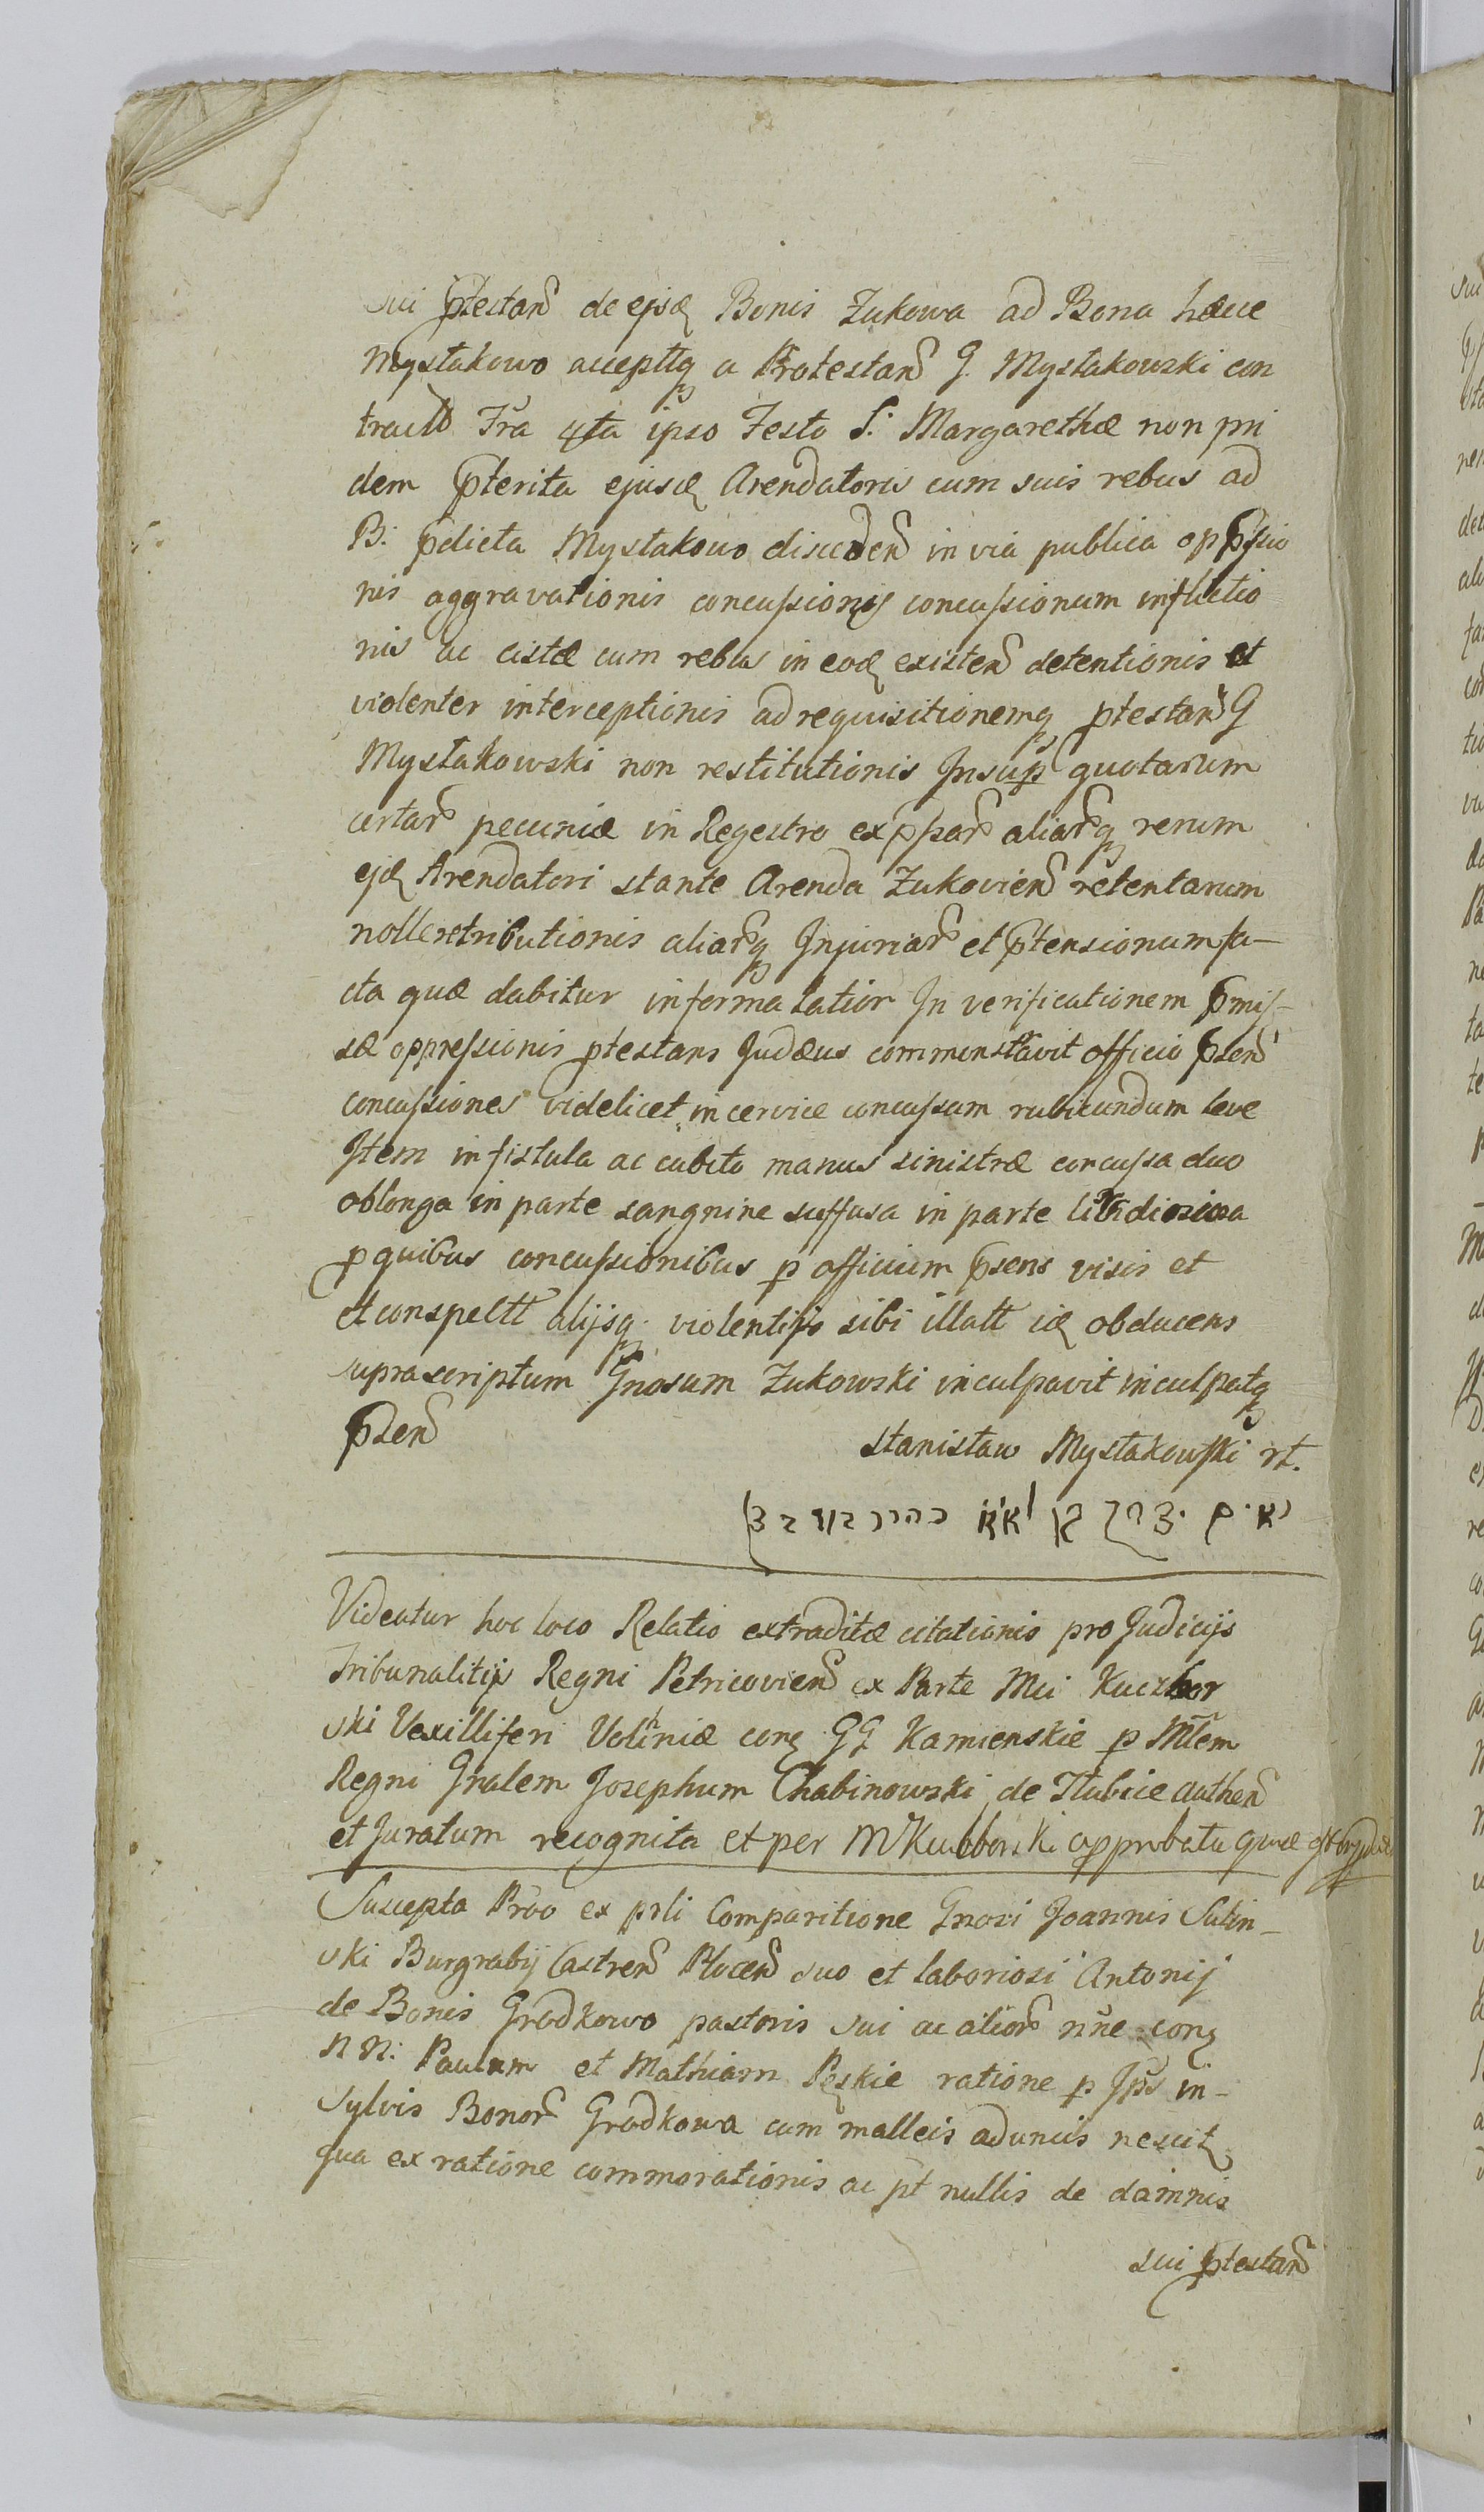 sui ptestan de ejsd Bonis Zukowa ad Bona hæce
Mystakowo accepttq a Protestan G. Mystakowski con
tractt Fra 4ta ipso Festo S. Margarethæ non pri
dem pterita ejusd Arendatoris cum suis rebus ad
B: pdicta Mystakowo disceden in via publica oppssio
nis aggravationis concussionis concussionum inflictio
nis ac cistæ cum rebus in ead existen detentionis et
violenter interceptionis ad requisitionemq ptestan G
Mystakowski non restitutionis Insup quotarum
certar pecuniæ in Regestro exppssar aliarq rerum
ejd Arendatori stante Arenda Zukovien retentarum
nolleretributionis aliarq Injuriar et ptensionum fa-
cta quæ dabitur in forma latior In verificationem pmis-
sæ oppressionis ptestans Judæus commonstravit officio psen
concussiones videlicet in cervice concussum rubicundum leve
Item in fistula ac cubito manus sinistræ concussa duo
oblonga in parte sangvine suffusa in parte
p quibus concussionibus p officium psens visis et
et conspectt alijsq violentijs sibi illatt id obducens
suprascriptum Gnosum Zukowski inculpavit inculpatq
psen
Stanisław Mystakowski rt.
Videatur hoc loco Relatio extraditæ citationis pro Judicijs
Tribunalitijs Regni Petricovien ex Parte Mci Kuczbor
ski Vexilliferi Volhniæ conq GG Kamienskie p Mtlem
Regni Gnalem Josephum Chabinowski de Słubice authen
et Juratum recognita et per M Kucborski approbata quæ
Suscepta Prõo ex prli Comparitione Gnosi Joannis Sulin-
ski Burgrabij Castren Plocen suo et laboriosi Antonij
de Bonis Grodkowo pastoris sui ac alior nñe conq
NN: Paulum et Mathiam Pęskie ratione p Ips in-
Sylvis Bonor Grodkowa cum malleis aduncis nescit
qua ex ratione commorationis ac pt nullis de damnis
sui ptestan